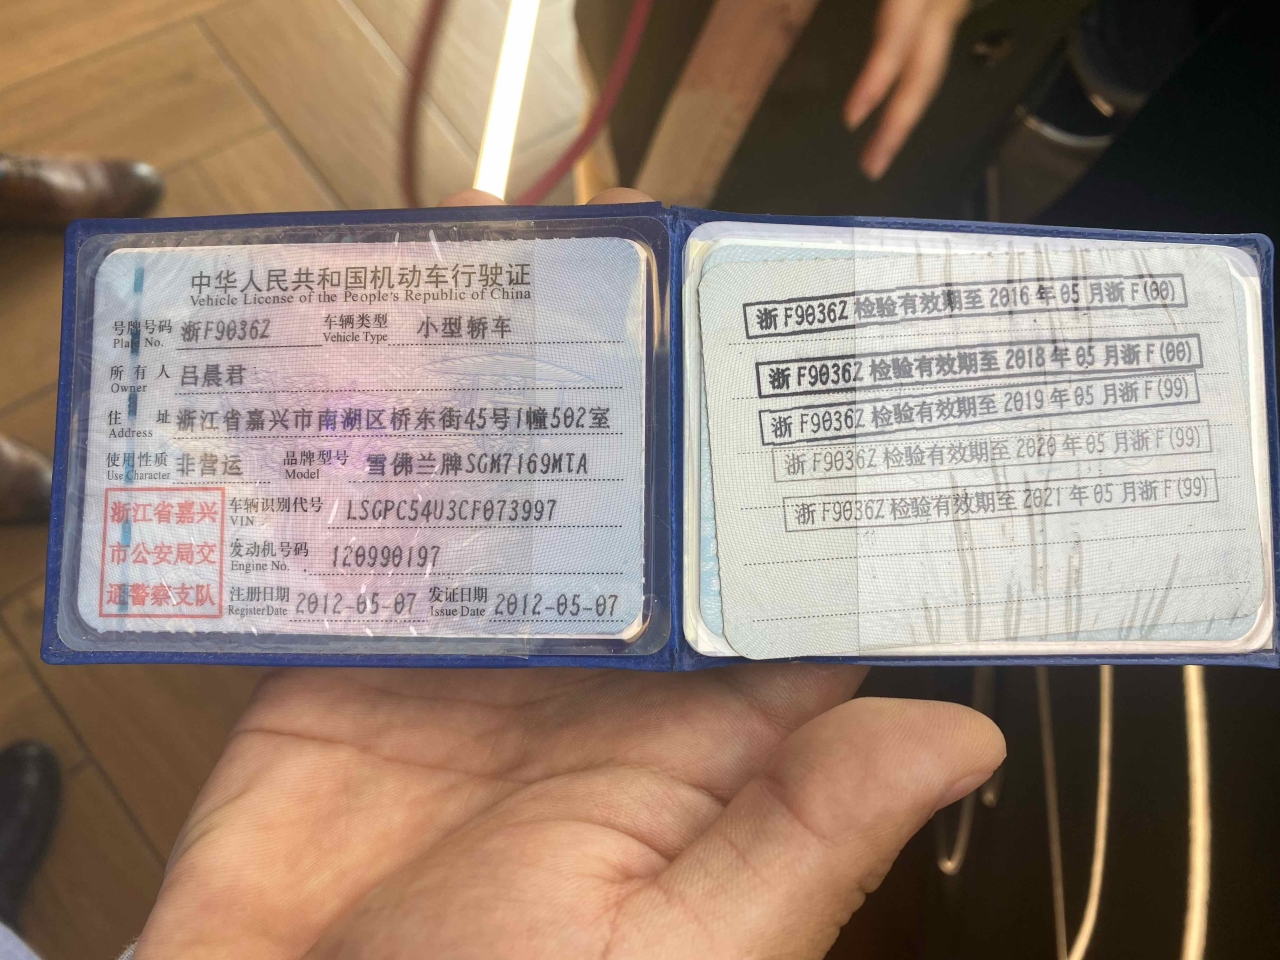 中华人民共和国机动车行驶证
Vehicle License of the People's Republic of China
号牌号码 浙F9036Z 车辆类型 小型轿车
Plate No. Vehicle Type
所有人 吕晨君
Owner
住址 浙江省嘉兴市南湖区桥东街45号1幢502室
Address
使用性质 非营运 品牌型号 雪佛兰牌SGM7169MTA
Use Character Model
浙江省嘉兴
市公安局交
通警察支队
车辆识别代号 LSGPC54U3CF073997
VIN
发动机号码 120990197
Engine No.
注册日期 2012-05-07 发证日期 2012-05-07
Register Date Issue Date
浙F9036Z 检验有效期至 2016年05月浙F(00)
浙F9036Z 检验有效期至 2018年05月浙F(00)
浙F9036Z 检验有效期至 2019年05月浙F(99)
浙F9036Z 检验有效期至 2020年05月浙F(99)
浙F9036Z 检验有效期至 2021年05月浙F(99)